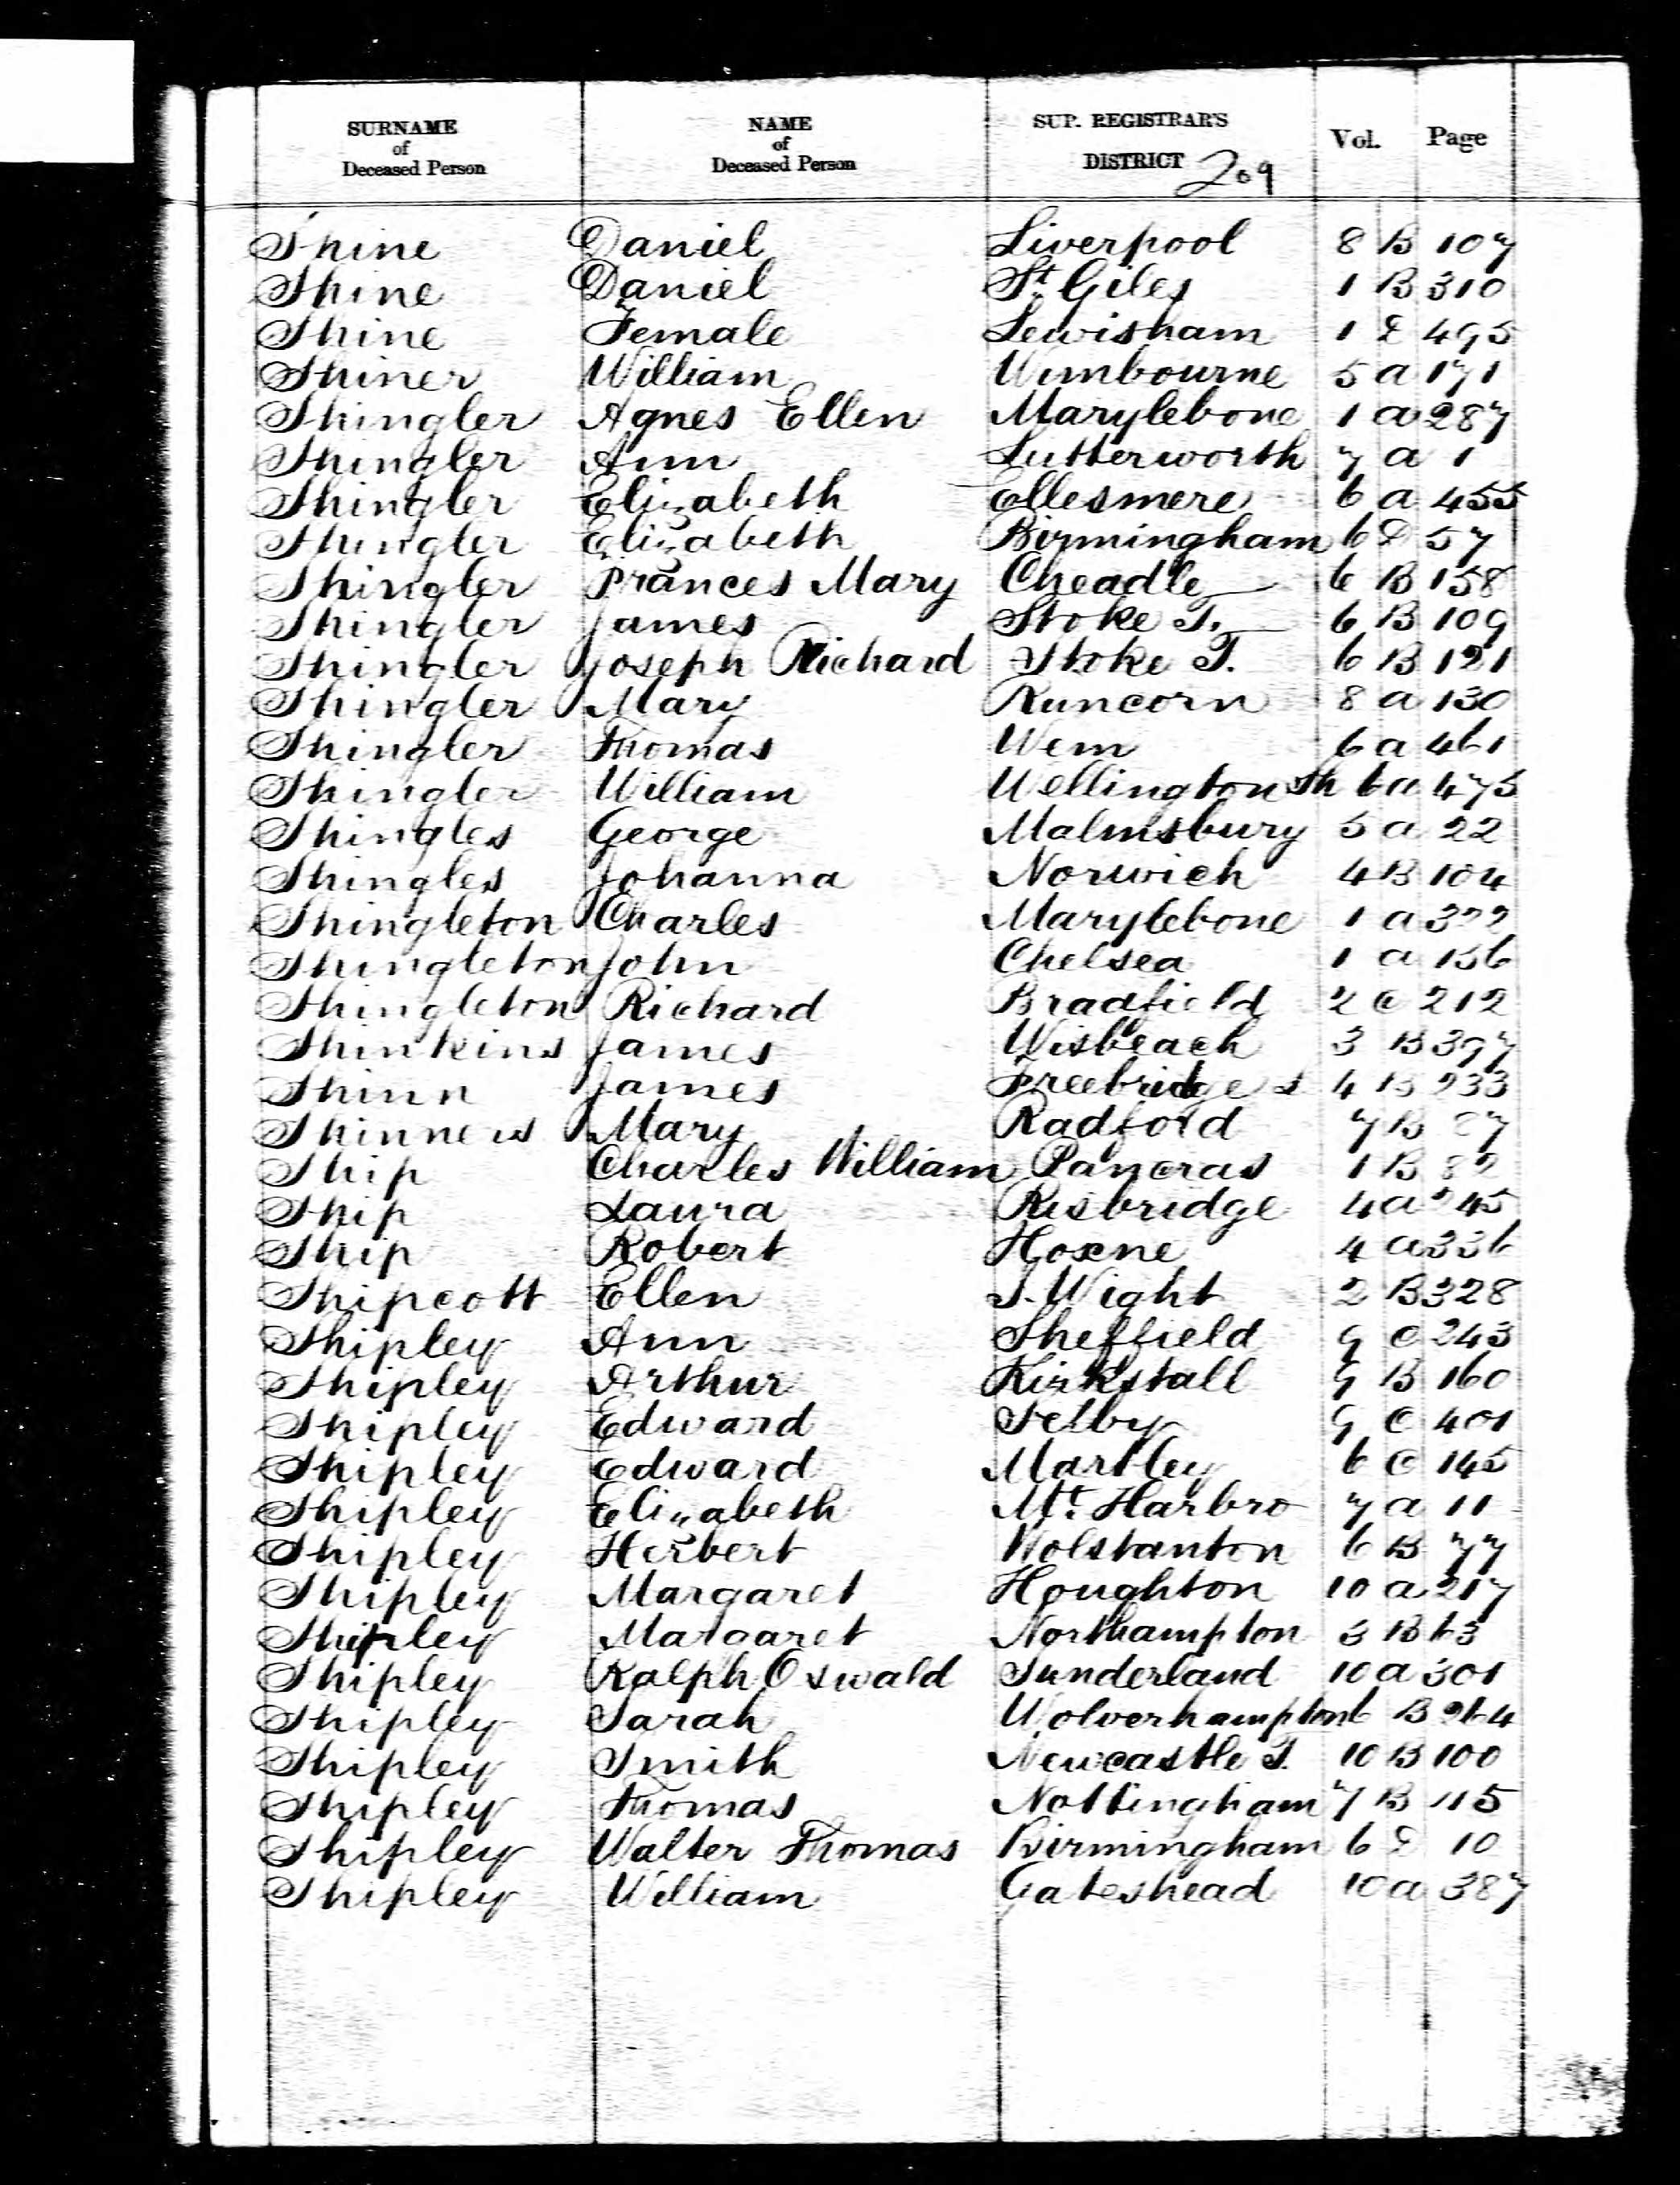 SURNAME of Deceased Person NAME of Deceased Person SUP. REGISTRAR'S DISTRICT 209 Vol. Page
Shine Daniel Liverpool 8 B 107
Shine Daniel St Giles 1 B 310
Shine Female Lewisham 1 D 495
Shiner William Wimbourne 5 a 171
Shingler Agnes Ellen Marylebone 1 a 287
Shingler Ann Lutterworth 7 a 1
Shingler Elizabeth Ellesmere 6 a 455
Shingler Elizabeth Birmingham 6 D 57
Shingler Frances Mary Cheadle 6 B 158
Shingler James Stoke T. 6 B 109
Shingler Joseph Richard Stoke T. 6 B 121
Shingler Mary Runcorn 8 a 130
Shingler Thomas Wem 6 a 461
Shingler William Wellington Sh 6 a 475
Shingles George Malmsbury 5 a 22
Shingles Johanna Norwich 4 B 104
Shingleton Charles Marylebone 1 a 322
Shingleton John Chelsea 1 a 156
Shingleton Richard Bradfield 2 C 212
Shinkins James Wisbeach 3 B 397
Shinn James Freebridge L 4 B 233
Shinners Mary Radford 7 B 87
Ship Charles William Pancras 1 B 82
Ship Laura Risbridge 4 a
Ship Robert Hoxne 4 a 336
Shipcott Ellen I. Wight 2 B 328
Shipley Ann Sheffield 9 C 243
Shipley Arthur Kirkstall 9 B 160
Shipley Edward Selby 9 C 401
Shipley Edward Martley 6 C 145
Shipley Elizabeth Mt. Harbro 7 a 11
Shipley Herbert Wolstanton 6 B 77
Shipley Margaret Houghton 10 a 217
Shipley Margaret Northampton 3 B 63
Shipley Ralph Oswald Sunderland 10 a 301
Shipley Sarah Wolverhampton 6 B 264
Shipley Smith Newcastle T. 10 B 100
Shipley Thomas Nottingham 7 B 115
Shipley Walter Thomas Birmingham 6 D 10
Shipley William Gateshead 10 a 387